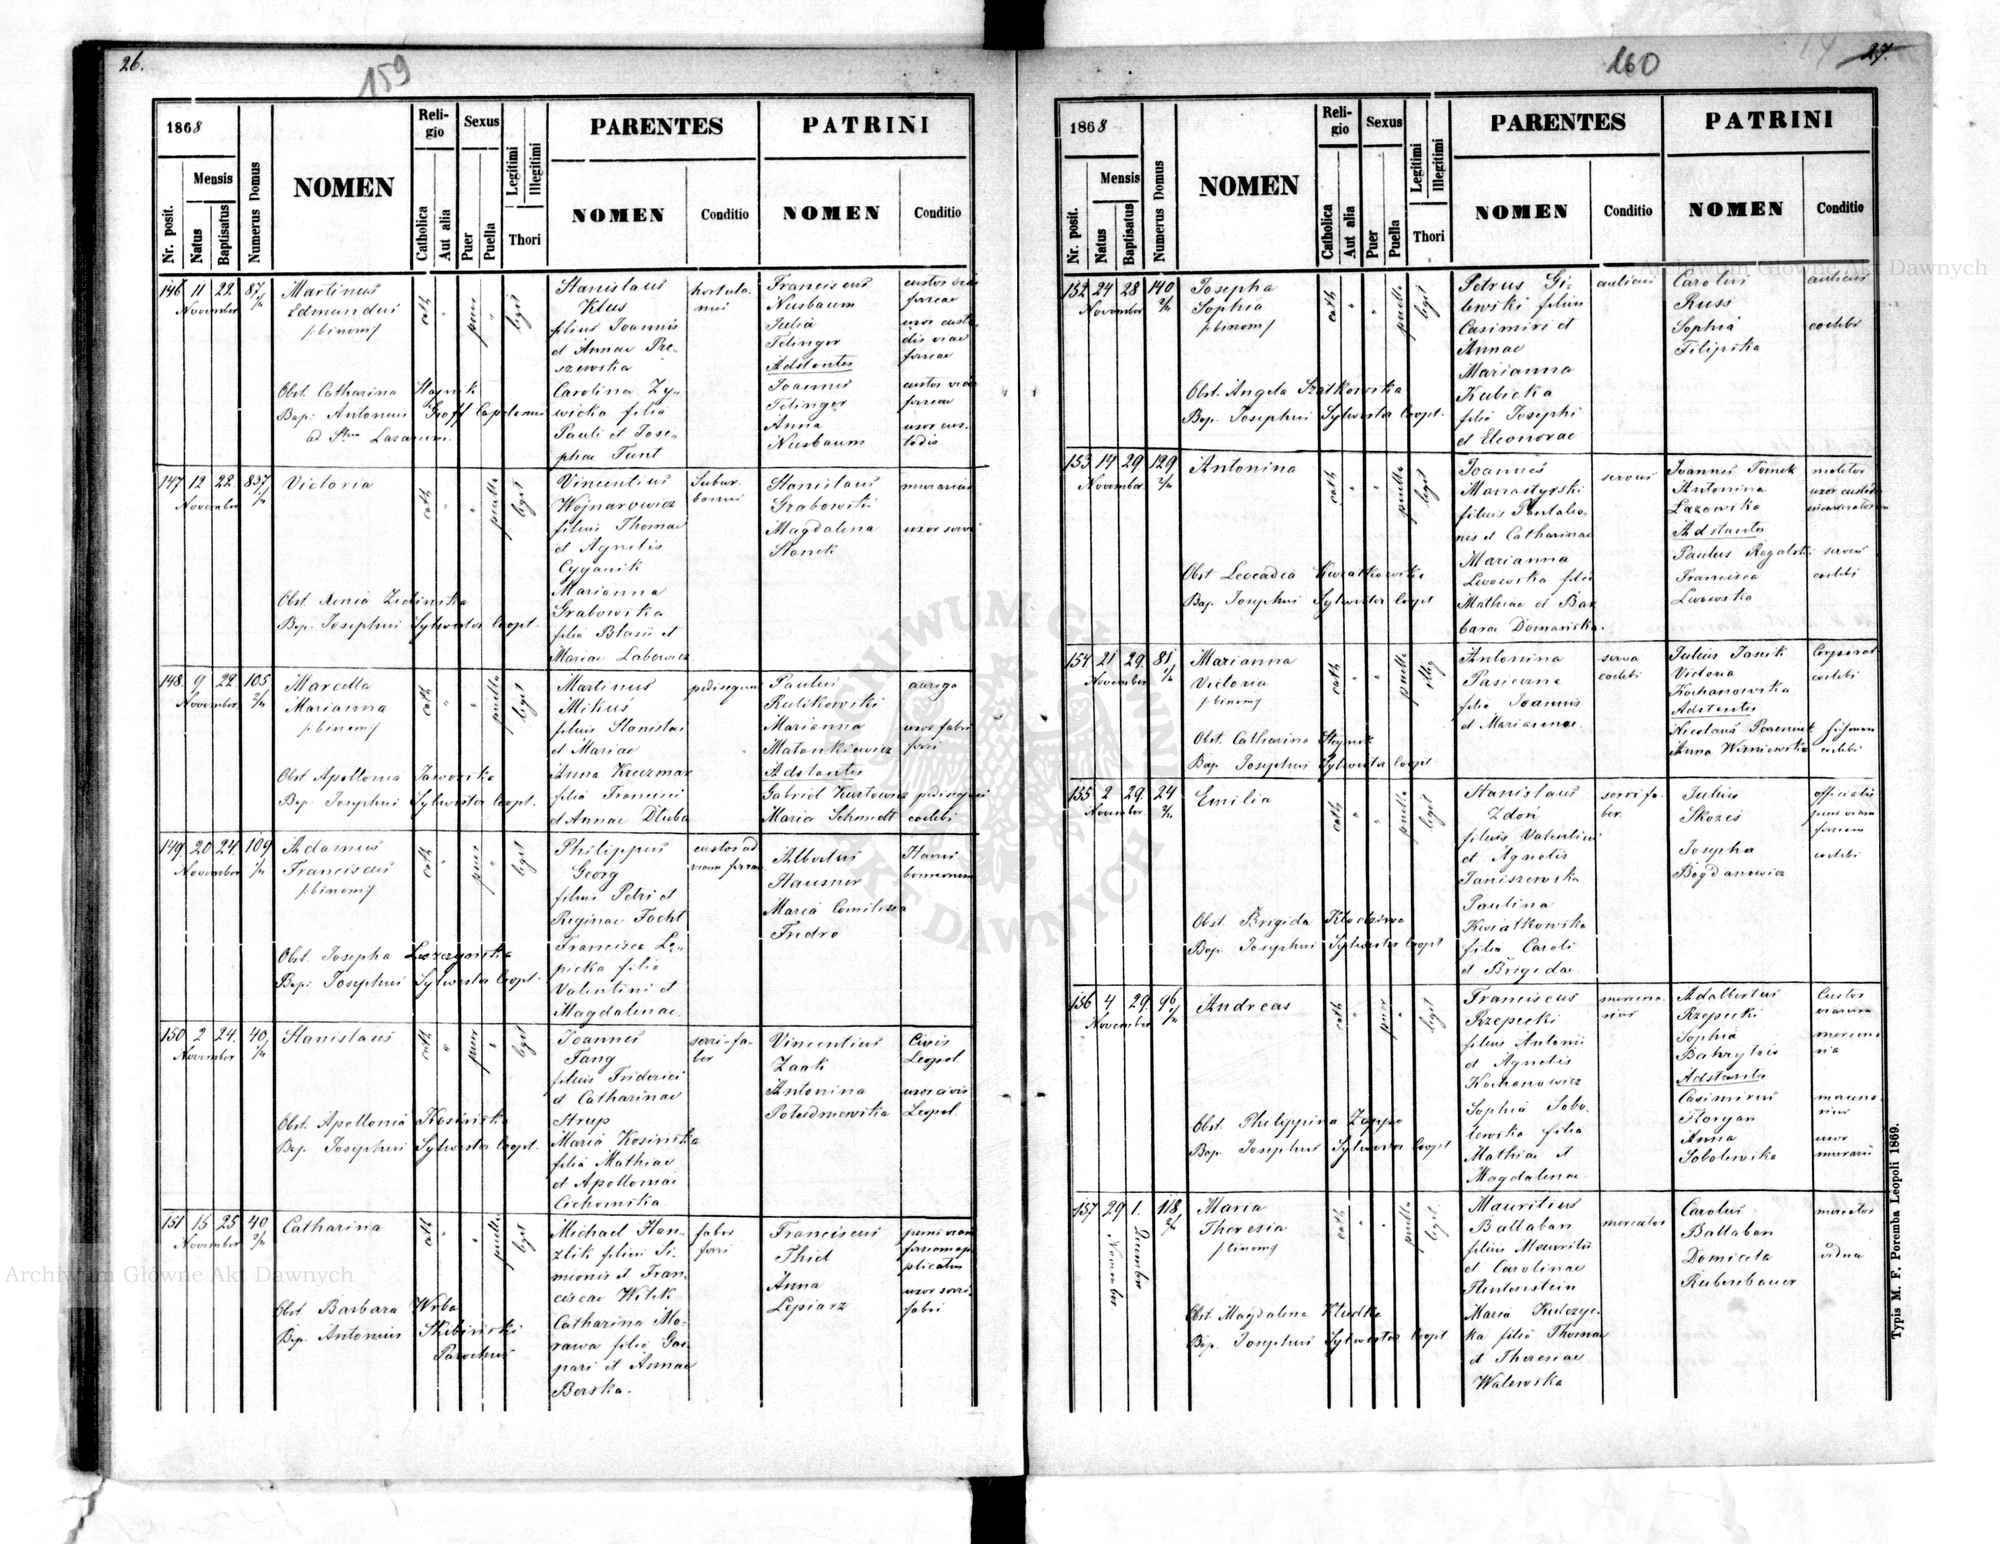 26.
159
1868
Mensis
Nr. posit.
Natus
Baptisatus
Numerus Domus
NOMEN
Religio
Catholica
Aut alia
Sexus
Puer
Puella
Legitimi
Illegitimi
Thori
PARENTES
NOMEN
Conditio
PATRINI
NOMEN
Conditio
146 11 22 87
November
Martinus
Edmundus
/:binom:/
cath
puer
legit
Obst. Catharina Stajnik
Bap: Antonius Groff Capelanus
ad Stum Lazarum.
Stanislaus
Klus
filius Joannis
et Annae Pre-
szewska
Carolina Zy-
wicka filia
Pauli et Jose-
phae Funt
hortula-
nus
Franciscus
Nusbaum
Julia
Telinger
Adstantes
Joannes
Telinger
Anna
Nusbaum
custos viae
ferreae
uxor custo
dis viae
ferreae
custos viae
ferreae
uxor cus-
todis
147 12 22 837
November
Victoria
cath
puella
legit
Obst. Xenia Zielinska
Bap. Josephus Sylwester Coopt.
Vincentius
Wojnarowicz
filius Thomae
et Agnetis
Cyganik
Marianna
Grabowska
filia Blasii et
Mariae Labowicz
Subur-
banus
Stanislaus
Grabowski
Magdalena
Stanek
murarius
uxor servi
148 9 22 105
November
Marcella
Marianna
/:binom:/
cath
puella
legit
Obst Apollonia Jaworska
Bap. Josephus Sylwester Coopt.
Martinus
Mikus
filius Stanislai
et Mariae
Anna Kreczmar
filia Francisci
et Annae Dluba
pedisequus
Paulus
Kulikowski
Marianna
Matankiewicz
Adstantes
Gabriel Kurtowicz pedisequus
Maria Schmidt coelebs
auriga
uxor fabri
ferri
149. 20 24. 109
November
Adamus
Franciscus
/:binom:/
cath
puer
legit
Obst. Josepha Leszczynska
Bap: Josephus Sylwester Coopt.
Philippus
Georg
filius Petri et
Reginae Focht
Francisca Le-
picka filia
Valentini et
Magdalenae
custos ad
viam ferream
Albertus
Hausner
Maria Comitissa
Fredro
Haeres
bonorum
150. 2 24. 40
November
Stanislaus
cath
puer
legit
Obst. Apollonia Kosinska
Bap. Josephus Sylwester Coopt.
Joannes
Fang
filius Friderici
et Catharinae
Strup
Maria Kosinska
filia Mathiae
et Apolloniae
Cichomska
serri-fa-
ber
Vincentius
Zaak
Antonina
Poludniewska
Civis
Leopol
uxor civis
Leopol.
151 15 25 40
November
Catharina
cath
puella
legit
Obst Barbara Wrba
Bap. Antonius Skibinski
Parochus
Michael Han-
zlik filius Si-
meonis et Fran-
ciscae Wilk
Catharina Mo-
rawa filia Gas-
pari et Annae
Berska.
faber
ferri
Franciscus
Thiel
Anna
Lepiarz
uxor serri-
fabri
160
27.
1868
Mensis
Nr. posit.
Natus
Baptisatus
Numerus Domus
NOMEN
Religio
Catholica
Aut alia
Sexus
Puer
Puella
Legitimi
Illegitimi
Thori
PARENTES
NOMEN
Conditio
PATRINI
NOMEN
Conditio
152 24 28 140
November
Josepha
Sophia
/:binom:/
cath
puella
legit
Obst. Angela Szatkowska
Bap. Josephus Sylwester Coopt.
Petrus Gi-
lewski filius
Casimiri et
Annae
Marianna
Kubicka
filia Josephi
et Eleonorae
aulicus
Carolus
Russ
Sophia
Filipska
aulicus
coelebs
153 14 29 129
November
Antonina
cath
puella
legit
Obst Leocadia Kwiatkowska
Bap. Josephus Sylwester Coopt
Joannes
Manastyrski
filius Pantaleo-
nis et Catharinae
Marianna
Lwowska filia
Mathiae et Bar
barae Domanska.
servus
Joannes Tomek molitor
Antonina
Lazowska
Adstantes
Paulus Rogalski servus
Francisca coelebs
Lwowska
154 21 29. 81
November
Marianna
Victoria
/:binom:/
cath
puella
illeg
Obst. Catharina Stajnik
Bap. Josephus Sylwester Coopt.
Antonina
Pasieczna
filia Joannis
et Mariannae.
serva
coelebs
Julius Jasik Corporal
Victoria coelebs
Kochanowska
Adstantes
Anna Wisniewska coelebs
155 2 29. 24
November
Emilia
cath
puella
legit
Obst. Brigida
Bap. Josephus Sylwester Coopt
Stanislaus
Zdon
filius Valentini
et Agnetis
Janiszewska
Paulina
Kwiatkowska
filia Caroli
et Brigidae
serri fa-
ber.
Julius
Skozes
Josepha
Bogdanowicz
officialis
penes viam
ferream
coelebs
156 4 29. 96
November
Andreas
cath
puer
legit
Obst. Philippina Zappe
Bap. Josephus Sylwester Coopt
Franciscus
Rzepecki
filius Antonii
et Agnetis
Kochanowicz
Sophia Sobo-
lewska filia
Mathiae et
Magdalenae.
mercena-
rius
Adalbertus
Rzepecki
Sophia
Adstantes
Casimirus
Floryan
Anna
Sobolewska
Custos
viarum
mercena-
ria
mercena-
rius
uxor
murarii
157 29 1. 118
November
December
Maria
Theresia
/:binom:/
cath
puella
legit
Obst. Magdalena Kludka
Bap. Josephus Sylwester Coopt
Mauritius
Ballaban
filius Mauritii
et Carolinae
Flintenstein
Maria Kulczyc-
ka filia Thomae
et Theresiae
Walewska
mercator
Carolus
Ballaban
Domicela
Rubenbauer
mercator
vidua
Typis M. F. Poremba Leopoli 1869.
Archiwum Główne Akt Dawnych
Archiwum Główne Akt Dawnych
ARCHIWUM GŁÓWNE AKT DAWNYCH